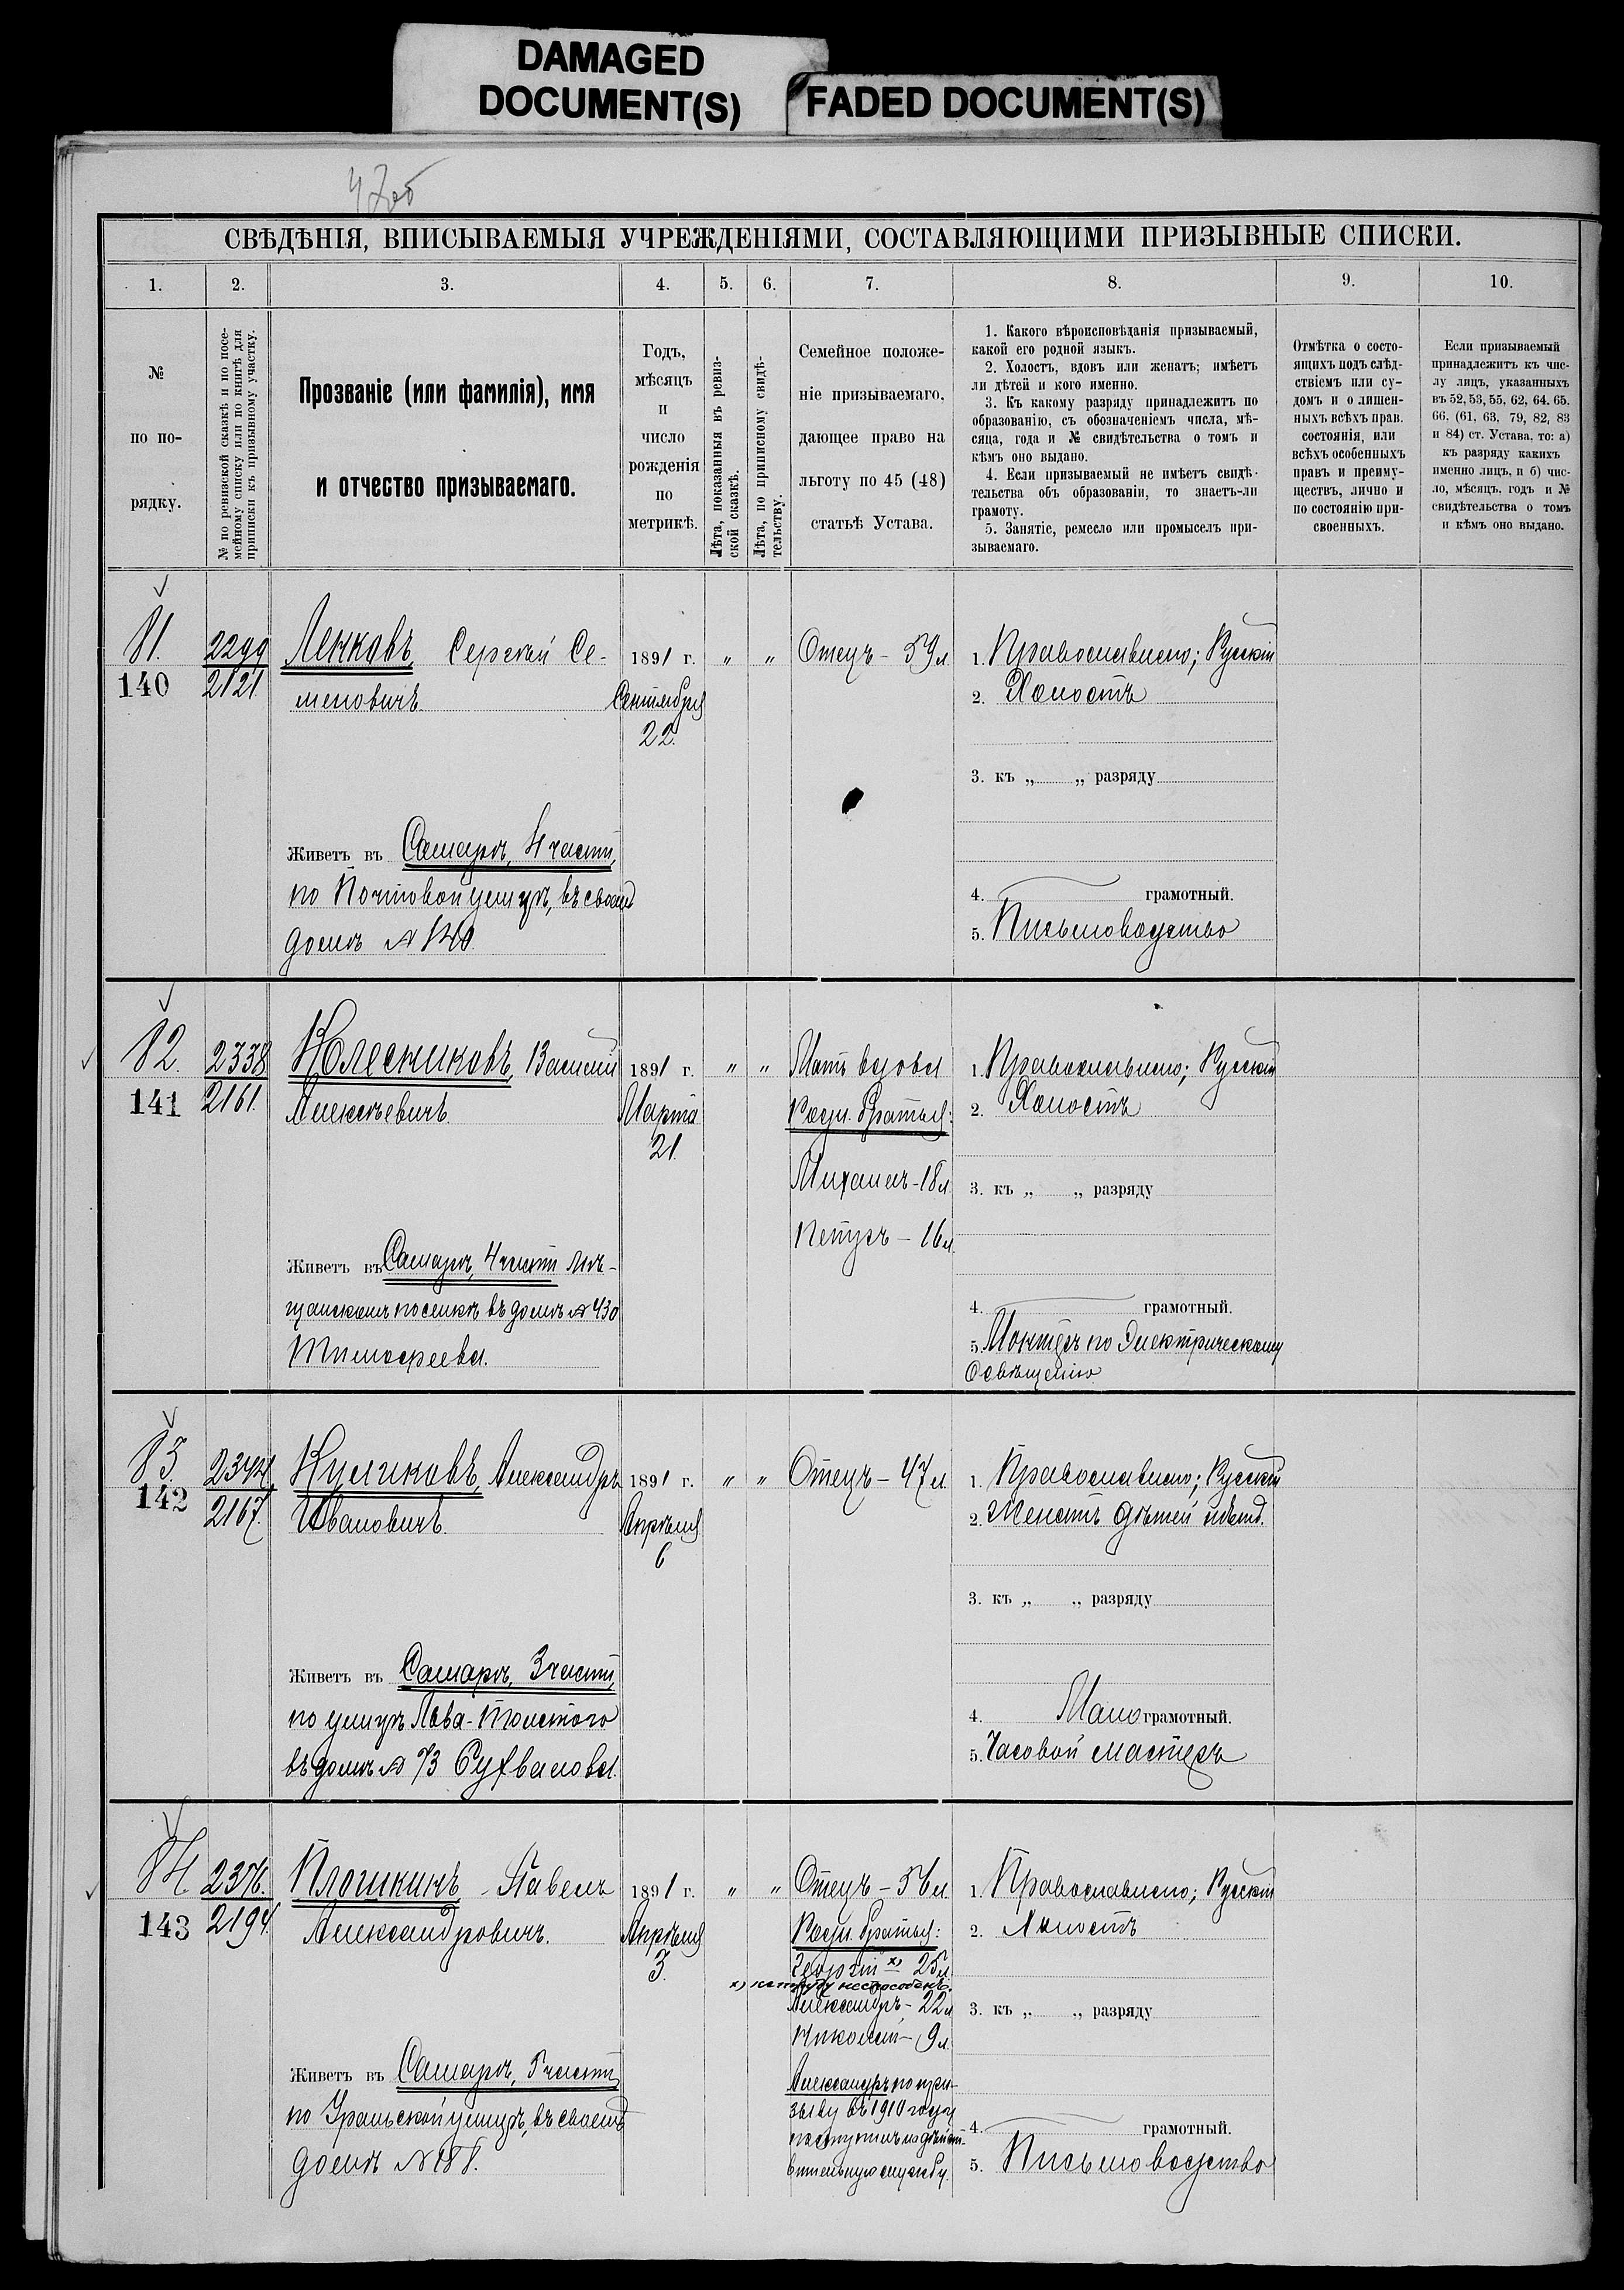 DAMAGED
DOCUMENT(S)
FADED DOCUMENT(S)
47об
СВѢДѢНІЯ, ВПИСЫВАЕМЫЯ УЧРЕЖДЕНІЯМИ, СОСТАВЛЯЮЩИМИ ПРИЗЫВНЫЕ СПИСКИ.
1. 2. 3. 4. 5. 6. 7. 8. 9. 10.
№
по по-
рядку.
№ по ревизской сказкѣ и по посе-
мейному списку или по книгѣ для
приписки къ призывному участку.
Прозваніе (или фамилія), имя
и отчество призываемаго.
Годъ,
мѣсяцъ
и
число
рожденія
по
метрикѣ.
Лѣта, показанныя въ ревиз-
ской сказкѣ.
Лѣта, по приписному свидѣ-
тельству.
Семейное положе-
ніе призываемаго,
дающее право на
льготу по 45 (48)
статьѣ Устава.
1. Какого вѣроисповѣданія призываемый,
какой его родной языкъ.
2. Холостъ, вдовъ или женатъ; имѣетъ
ли дѣтей и кого именно.
3. Къ какому разряду принадлежитъ по
образованію, съ обозначеніемъ числа, мѣ-
сяца, года и № свидѣтельства о томъ и
кѣмъ оно выдано.
4. Если призываемый не имѣетъ свидѣ-
тельства объ образованіи, то знаетъ-ли
грамоту.
5. Занятіе, ремесло или промыселъ при-
зываемаго.
Отмѣтка о состо-
ящихъ подъ слѣд-
ствіемъ или су-
домъ и о лишен-
ныхъ всѣхъ прав.
состоянія, или
всѣхъ особенныхъ
правъ и преиму-
ществъ, лично и
по состоянію при-
своенныхъ.
Если призываемый
принадлежитъ къ чис-
лу лицъ, указанныхъ
въ 52, 53, 55, 62, 64, 65,
66, (61, 63, 79, 82, 83
и 84) ст. Устава, то: а)
къ разряду какихъ
именно лицъ, и б) чис-
ло, мѣсяцъ, годъ и №
свидѣтельства о томъ
и кѣмъ оно выдано.
81.
140
2299
2121
Ленковъ Сергѣй Се-
меновичъ
Живетъ въ Самарѣ, 4 части,
по Почтовой улицѣ, въ своемъ
домѣ № 140.
1891 г.
Сентября
22.
„ „
Отецъ - 59 л
1. Православнаго; Русскій
2. Холостъ
3. къ „ „ разряду
4. грамотный.
5. Письмоводство
82.
141
2338
2161.
Колесниковъ, Василій
Алексѣевичъ.
Живетъ въ Самарѣ, 4 части Мѣ-
щанскомъ поселкѣ въ домѣ № 430
Тимофеева.
1891 г.
Марта
21.
„ „
Мать вдова
Родн. братья:
Михаилъ - 18 л
Петръ - 16 л.
1. Православнаго; Русскій
2. Холостъ
3. къ „ „ разряду
4. грамотный.
5. Монтеръ по Электрическому
Освѣщенію
83.
142
2344.
2167.
Куликовъ, Александръ
Ивановичъ.
Живетъ въ Самарѣ, 3 части,
по улицѣ Льва-Толстого
въ домѣ № 73
1891 г.
Апрѣля
6
„ „
Отецъ - 47 л.
1. Православнаго; Русскій
2. Женатъ дѣтей нѣтъ.
3. къ „ „ разряду
4. Мало грамотный.
5. Часовой мастеръ
84.
143
2376.
2194.
Плошкинъ Павелъ
Александровичъ.
Живетъ въ Самарѣ, 5 части,
по Уральской улицѣ, въ своемъ
домѣ № 188.
1891 г.
Апрѣля
3.
„ „
Отецъ - 56 л.
Родн. братья:
Георгій х) 25 л
х) къ труду неспособенъ.
Александръ - 22 л
Николай - 9 л.
Александръ по при-
зыву въ 1910 году
поступилъ на дѣйст-
вительную службу.
1. Православнаго; Русскій
2. Холостъ
3. къ „ „ разряду
4. грамотный.
5. Письмоводство